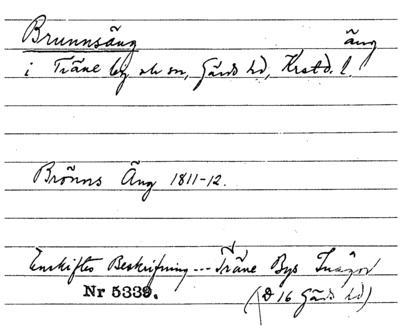 Brunnsäng äng
i Träne by och sn, Gärds hd, Krstd. l.
Brönns Äng 1811-12.
Enskiftes Beskrifning --- Träne Bys Inägor
Nr 5339. (D 16 Gärds hd)